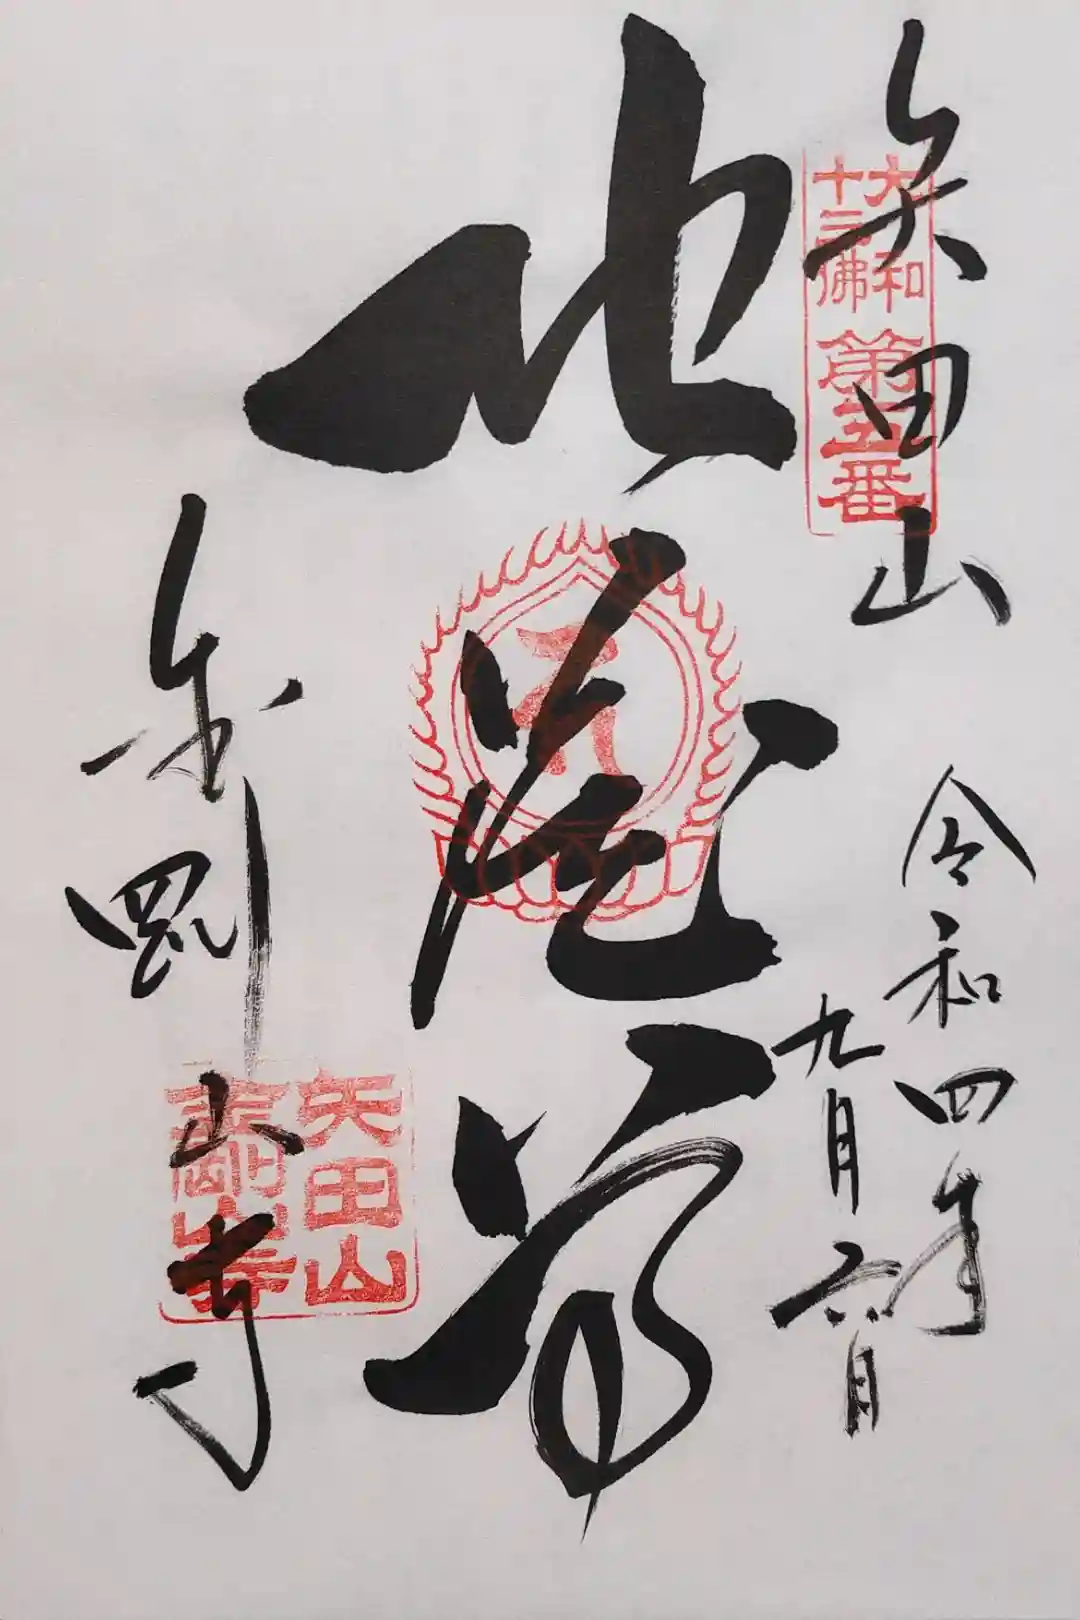 矢田山
大和
十三佛
第五番
令和四年
九月六日
地蔵尊
金剛山寺
矢田山
金剛山寺